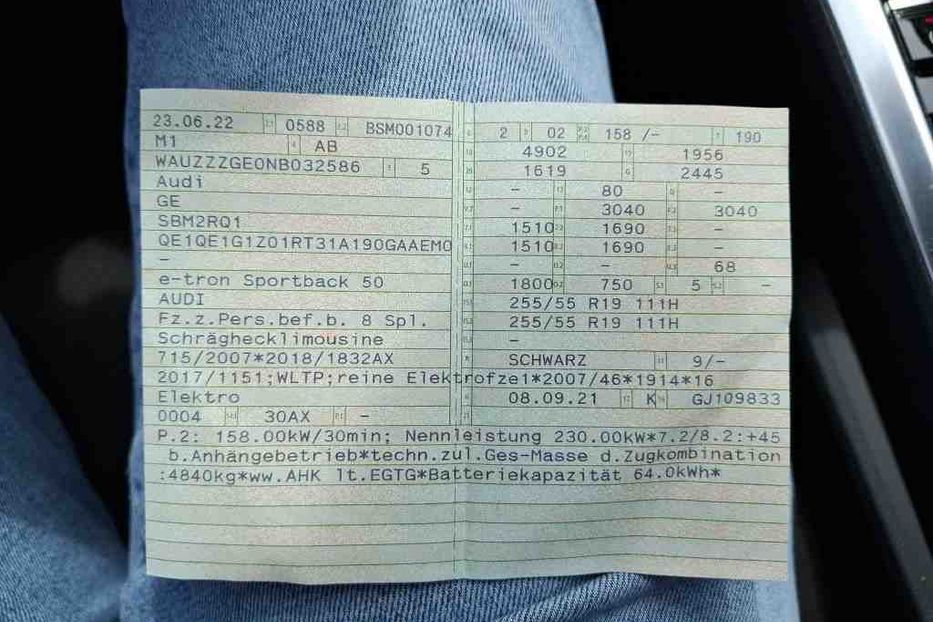 23.06.22 0588 BSM001074
M1 AB
WAUZZZGE0NB032586 5
Audi
GE
SBM2RQ1
QE1QE1G1Z01RT31A190GAAEM0
–
e-tron Sportback 50
AUDI
Fz.z.Pers.bef.b. 8 Spl.
Schräghecklimousine
715/2007*2018/1832AX
2017/1151;WLTP;reine Elektrofze1*2007/46*1914*16
Elektro
0004 30AX –
2 02 158 /– 190
4902 1956
1619 2445
– 80 –
– 3040 3040
1510 1690 –
1510 1690 –
– – 68
1800 750 5 –
255/55 R19 111H
255/55 R19 111H
–
SCHWARZ 9/–
08.09.21 K GJ109833
P.2: 158.00kW/30min; Nennleistung 230.00kW*7.2/8.2:+45
b.Anhängebetrieb*techn.zul.Ges-Masse d.Zugkombination
:4840kg*ww.AHK lt.EGTG*Batteriekapazität 64.0kWh*